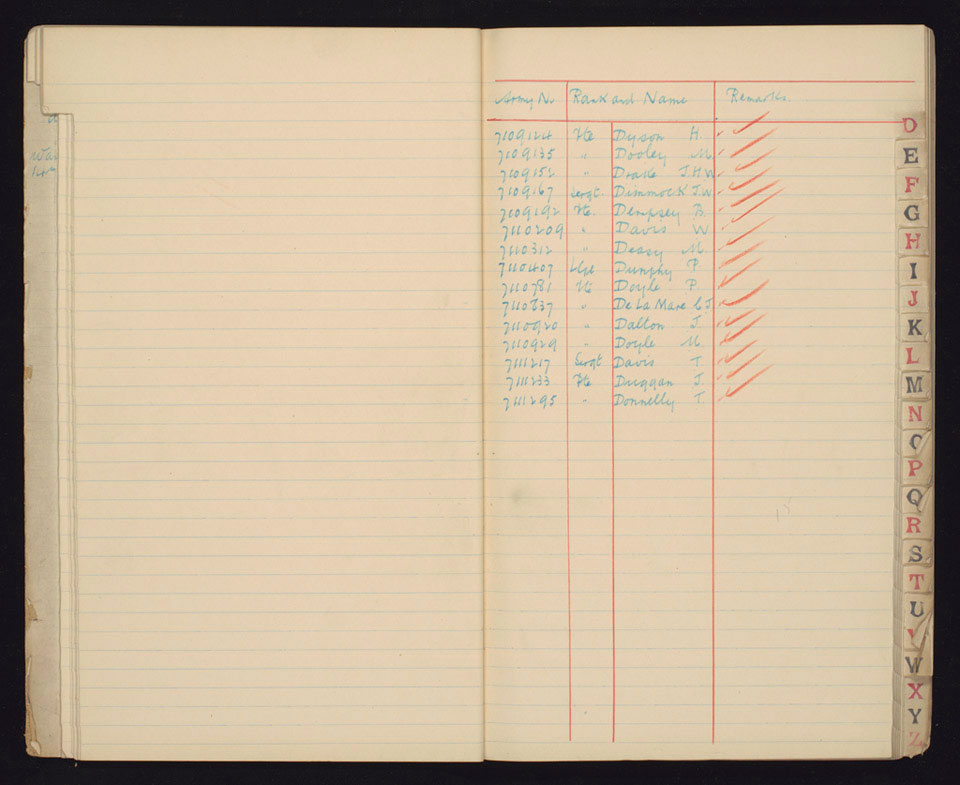 Army No. Rank and Name Remarks.
7109124 Pte Dyson H.
7109135 " Dooley M.
7109152 " Drake J.H.W.
7109167 Sergt. Dimmock J.W.
7109192 Pte. Dempsey B.
7110209 " Davis W
7110312 " Deasy M.
7110407 L/Cpl Dunphy P.
7110781 Pte Doyle P.
7110837 " De La Mare C.J.
7110920 " Dalton J.
7110929 " Doyle M.
7111217 Sergt Davis T.
7111233 Pte Duggan J.
7111295 " Donnelly T.
D
E
F
G
H
I
J
K
L
M
N
O
P
Q
R
S
T
U
V
W
X
Y
Z